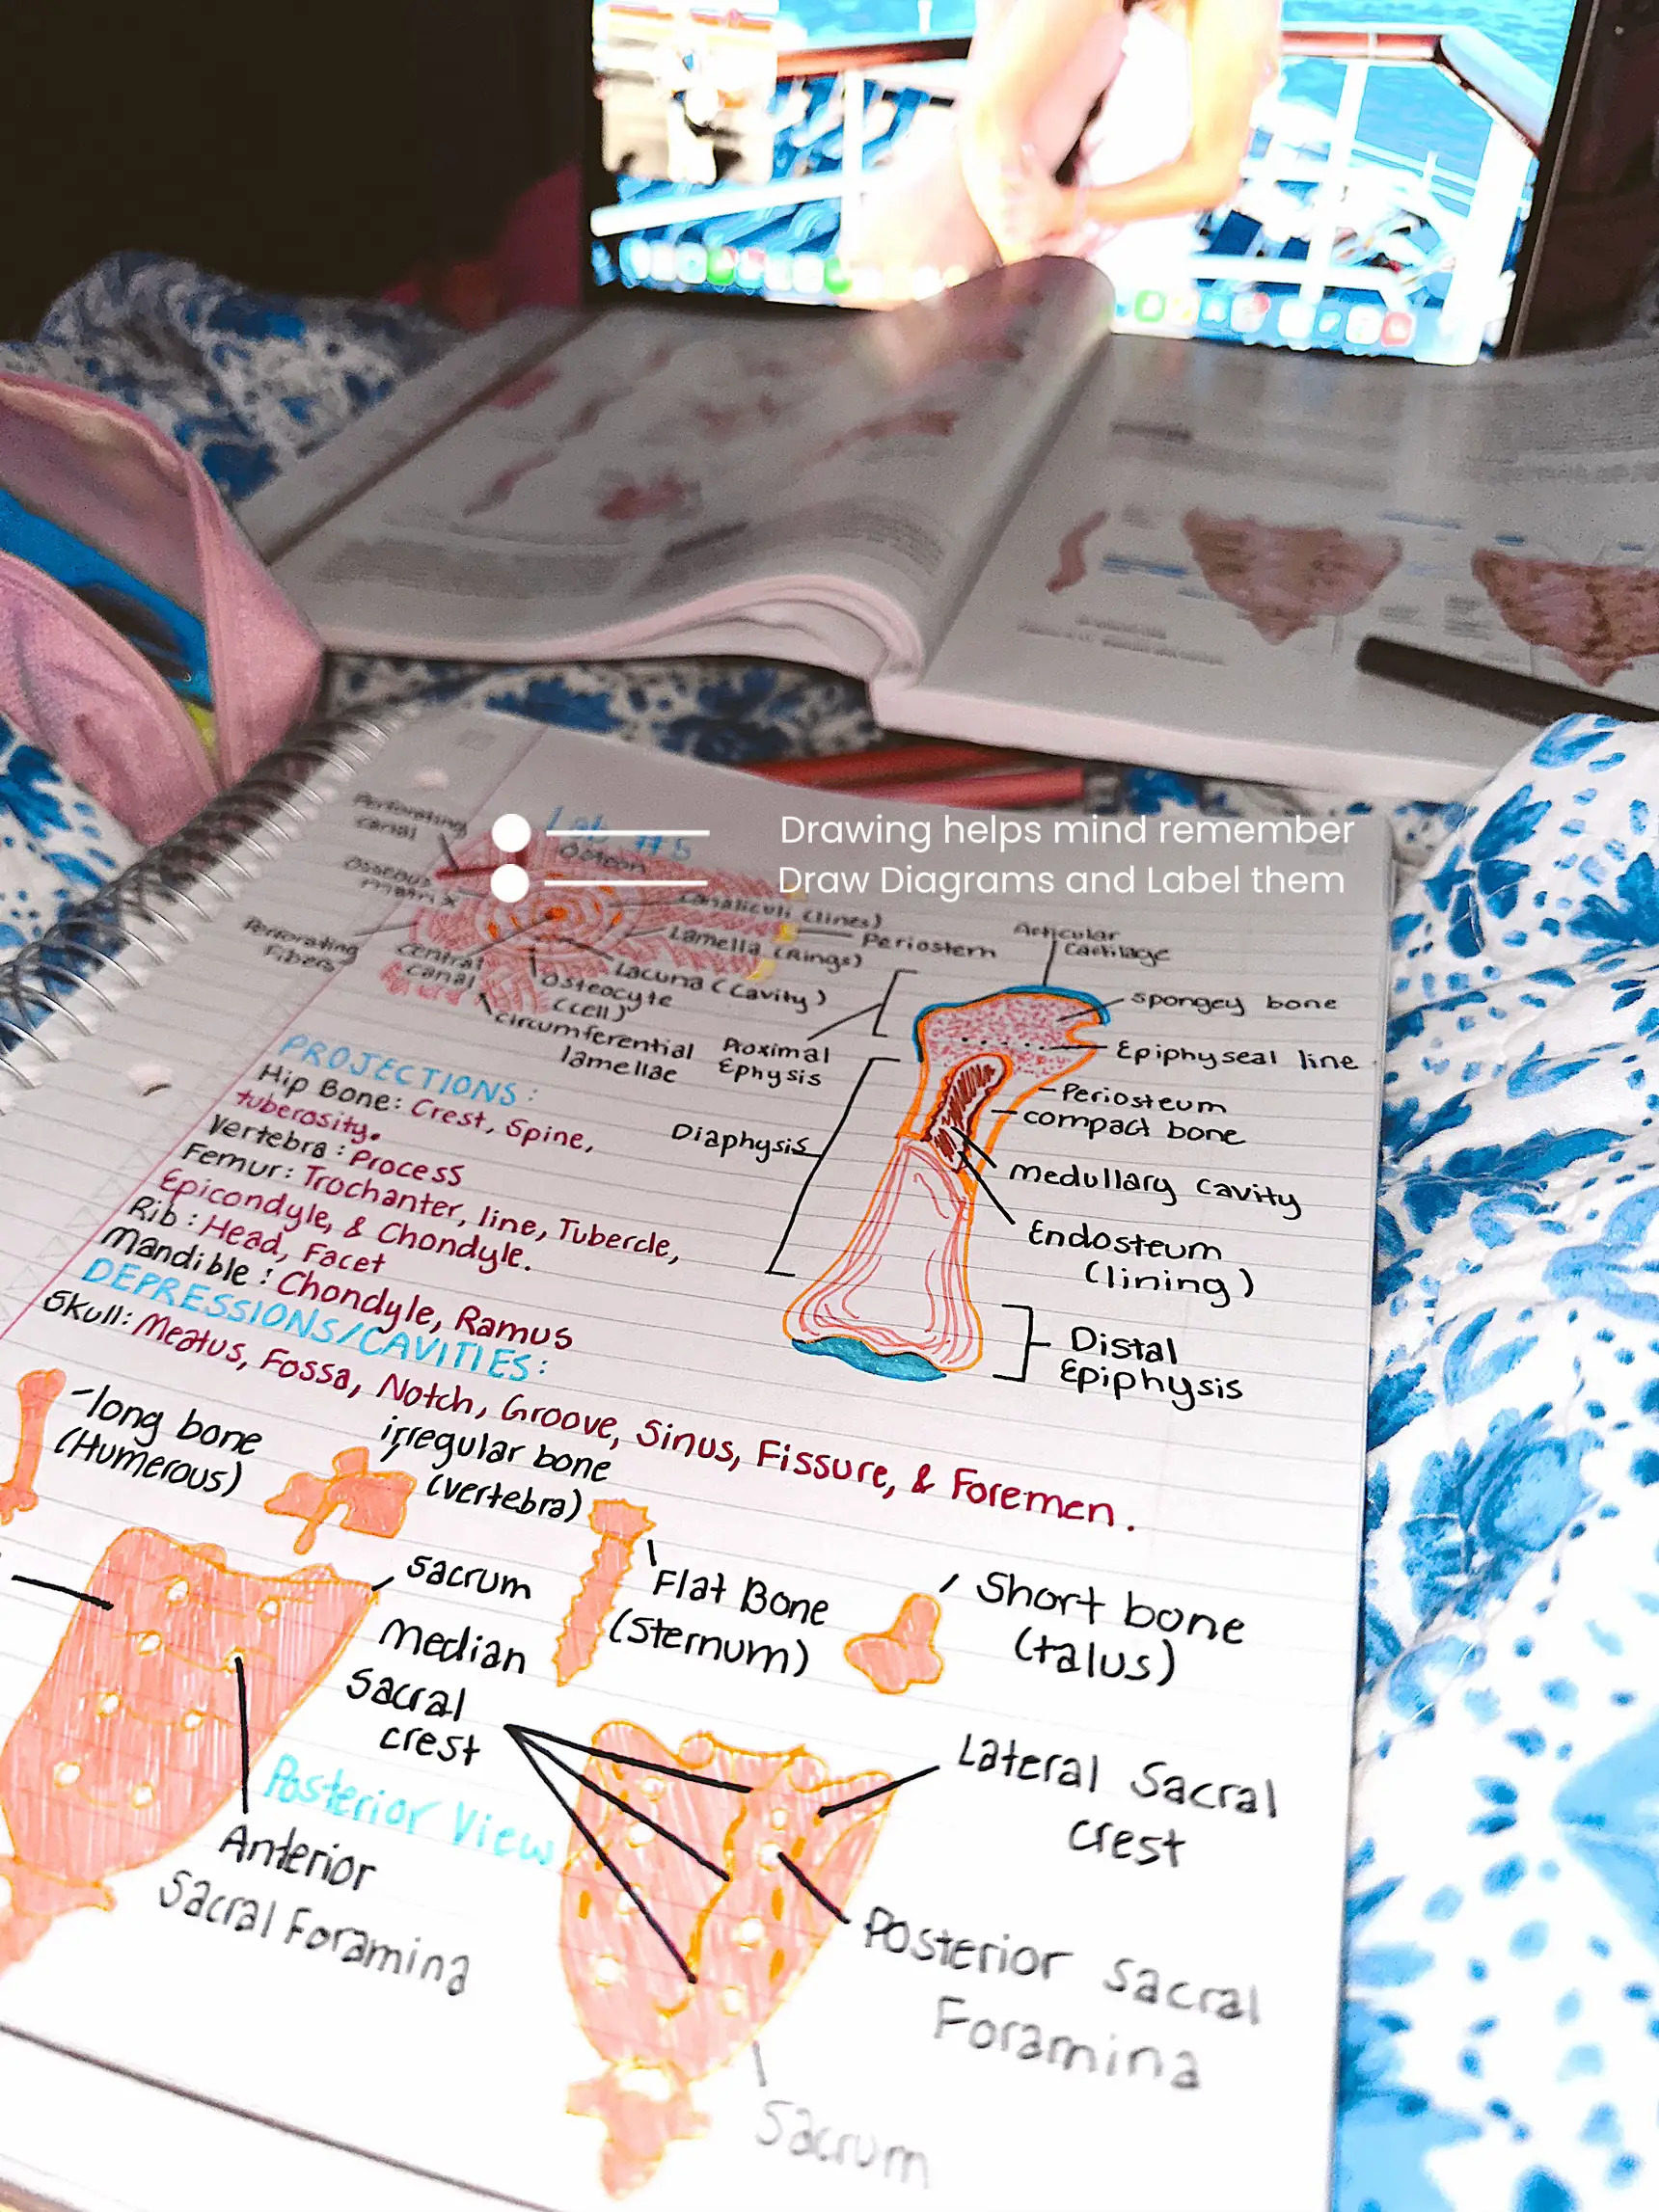 Drawing helps mind remember
Draw Diagrams and Label them
Lab #5
Osteon
Perforating
canal
Osseous
matrix
Perforating
Fibers
Central
canal
Canaliculi (lines)
Periostem
Lamella (Rings)
Lacuna (Cavity)
Osteocyte
(cell)
circumferential
lamellae
Articular
Cartilage
spongey bone
Epiphyseal line
Proximal
Ephysis
Periosteum
compact bone
Diaphysis
medullary cavity
Endosteum
(lining)
Distal
Epiphysis
PROJECTIONS:
Hip Bone: Crest, Spine,
tuberosity.
Vertebra: Process
Femur: Trochanter, line, Tubercle,
Epicondyle, & Chondyle.
Rib: Head, Facet
Mandible: Chondyle, Ramus
DEPRESSIONS/CAVITIES:
Skull: Meatus, Fossa, Notch, Groove, Sinus, Fissure, & Foremen.
long bone
(Humerous)
irregular bone
(vertebra)
Flat Bone
(Sternum)
Short bone
(talus)
sacrum
Median
Sacral
crest
Lateral Sacral
crest
Posterior View
Anterior
Sacral Foramina
Posterior Sacral
Foramina
Sacrum